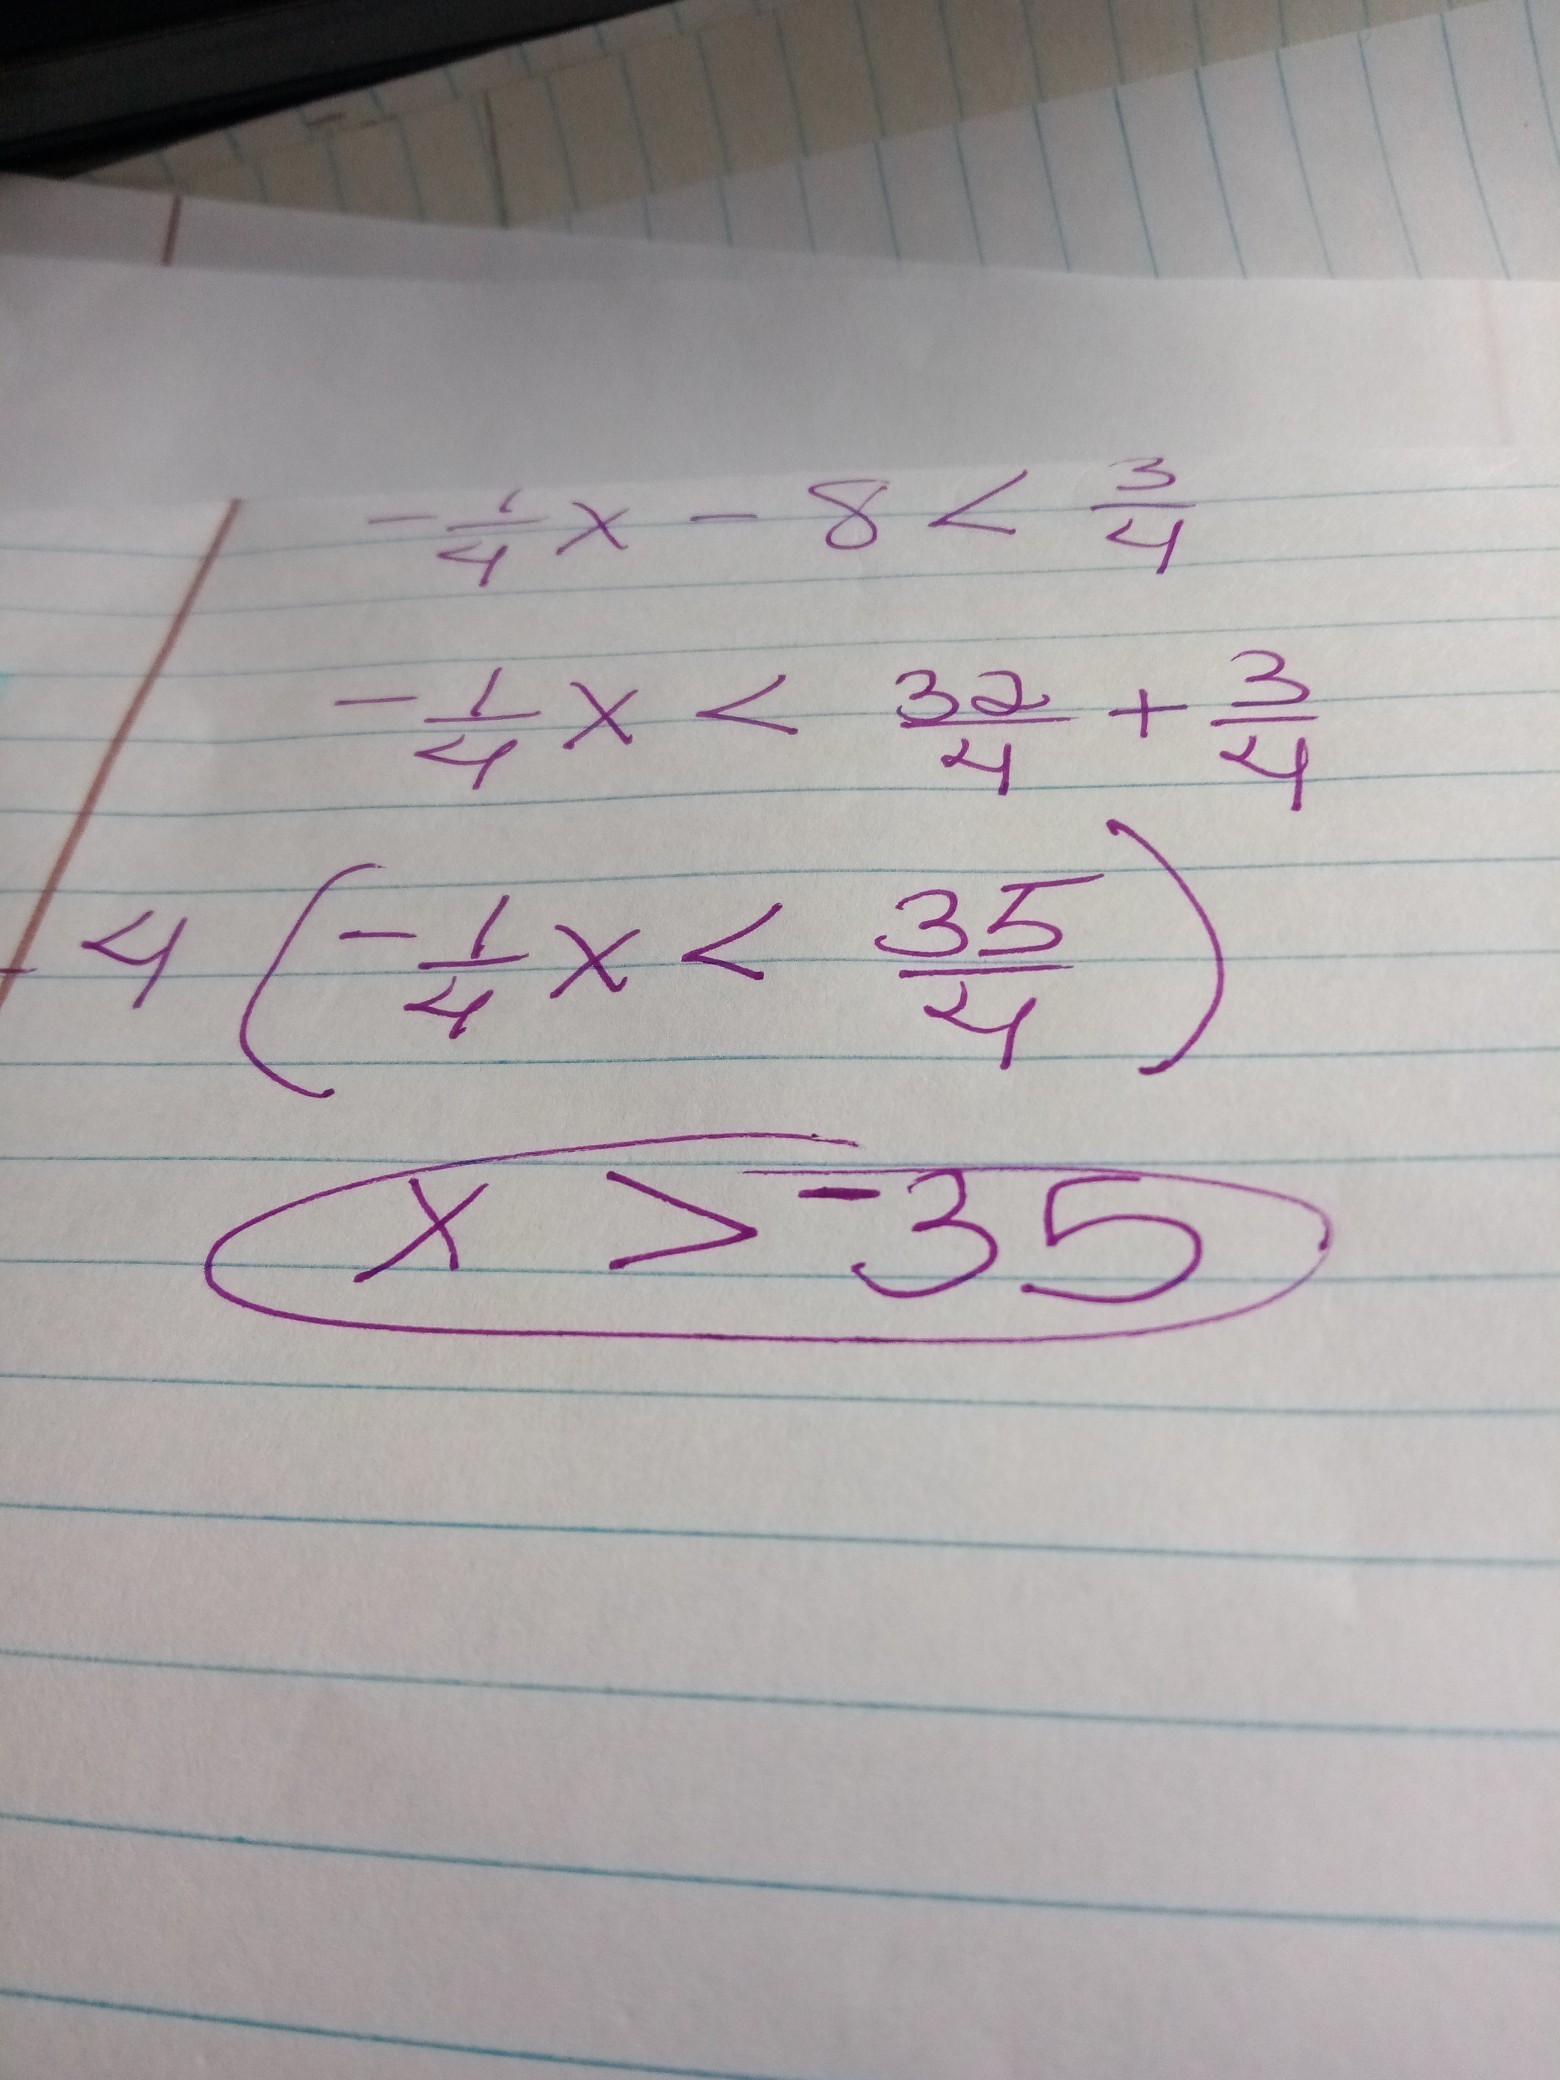 -1/4 x - 8 < 3/4
-1/4 x < 32/4 + 3/4
-4 ( -1/4 x < 35/4 )
x > -35